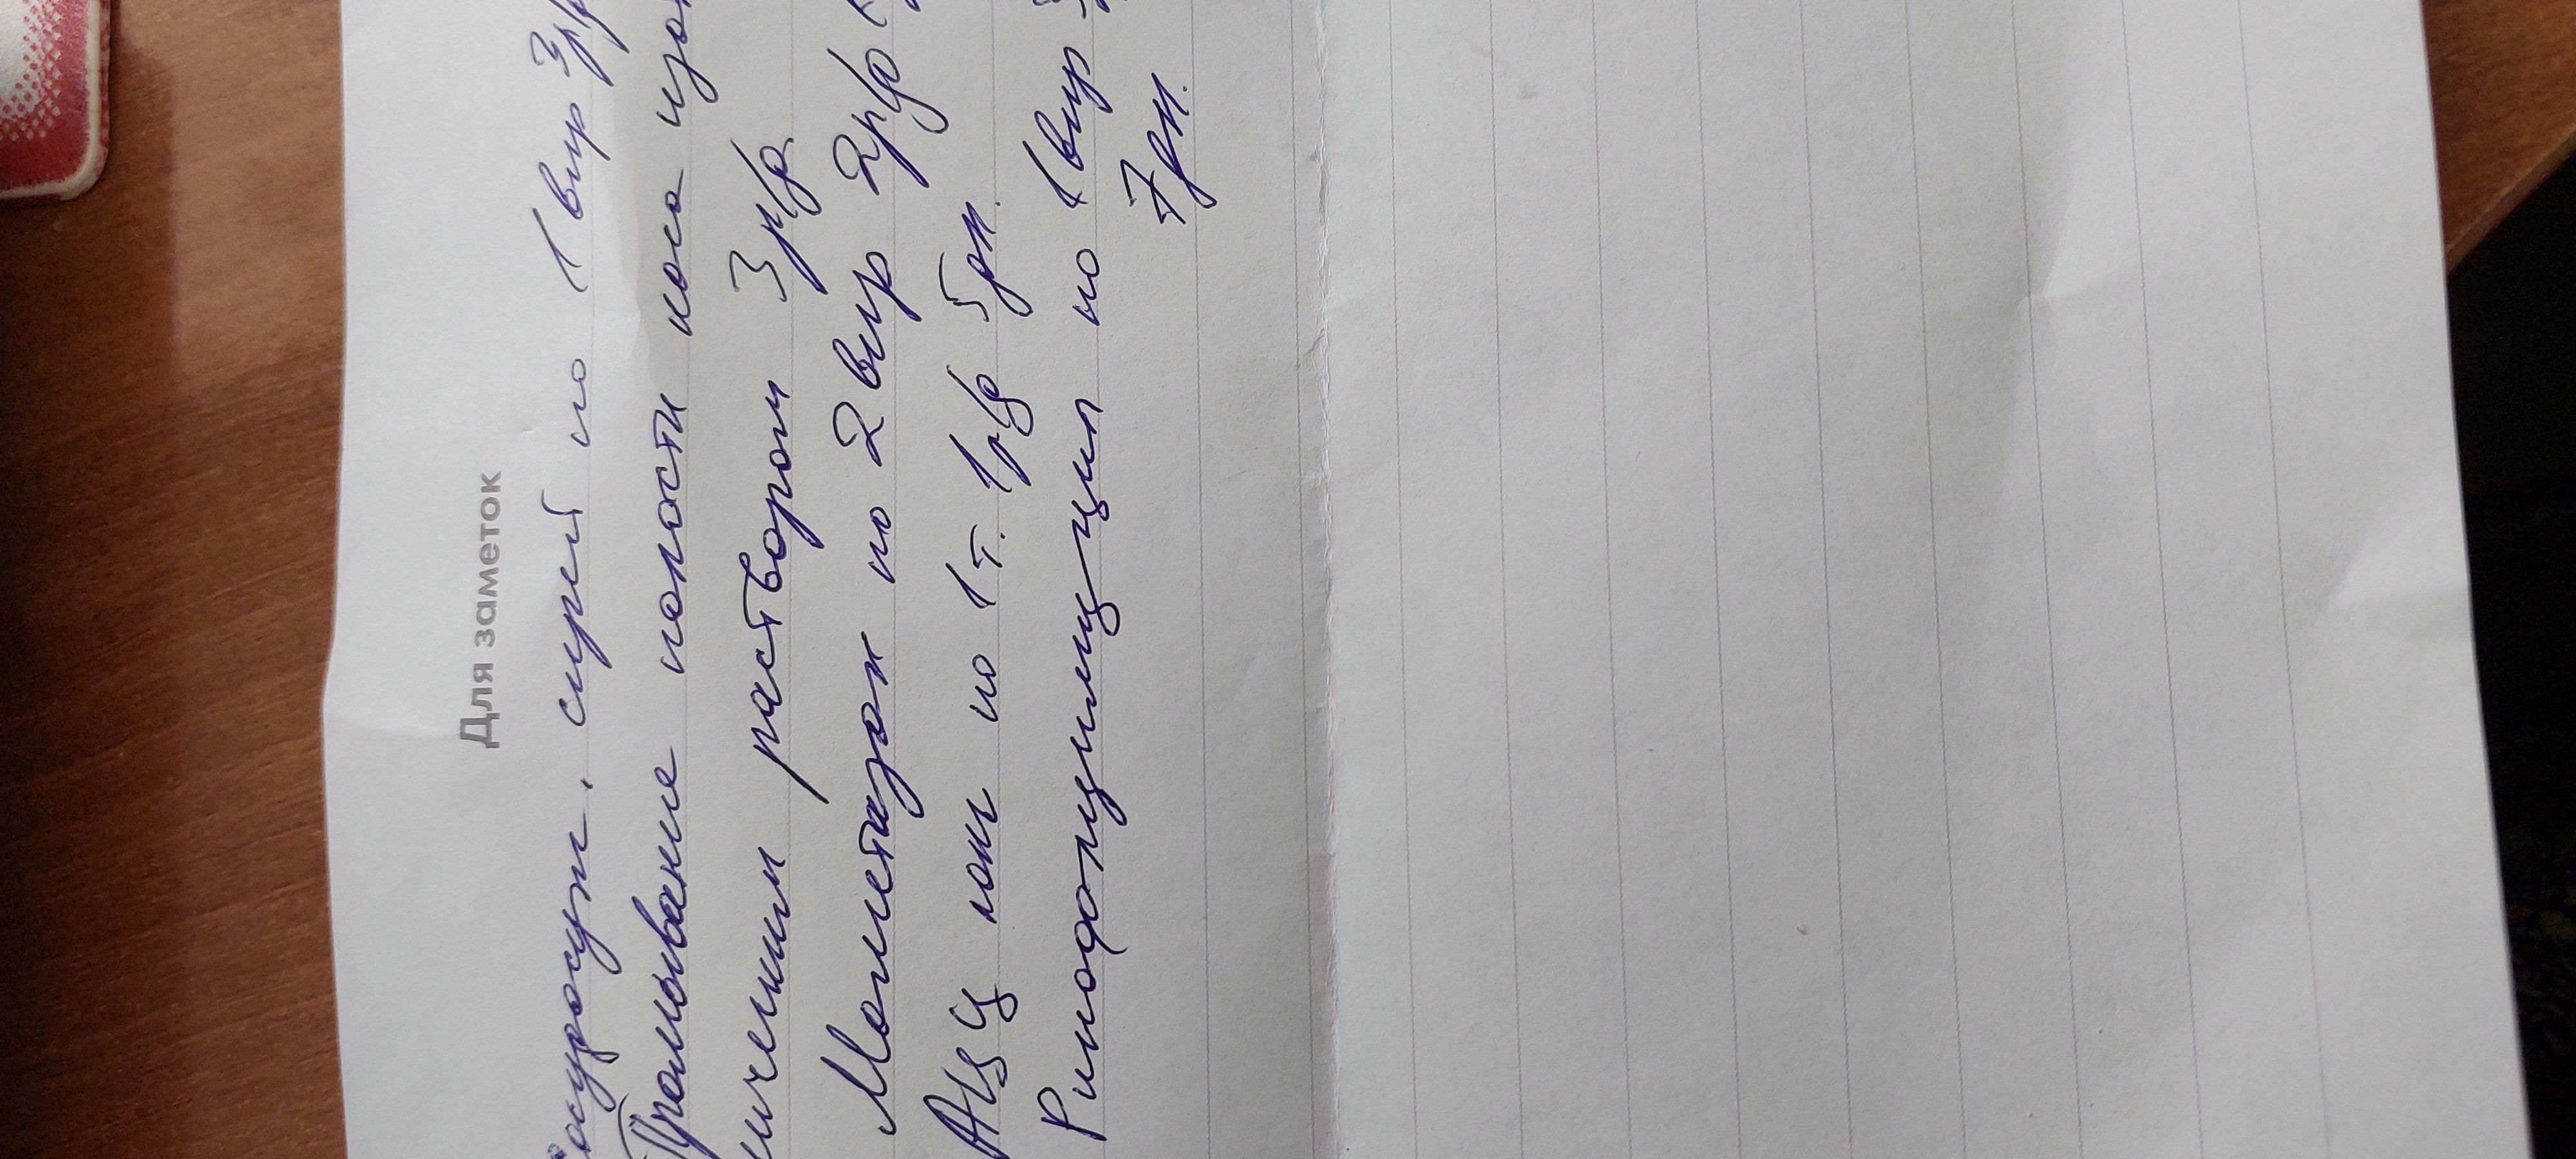 Для заметок
спрей по 1 впр 3р/
Промывание полости носа изо
ническим раствором 3 р/д
Мометазон по 2 впр 2р/д
АЦЦ лонг по 1 т. 1р/д 5дн.
Ринофлуимуцил по 1 впр
7дн.